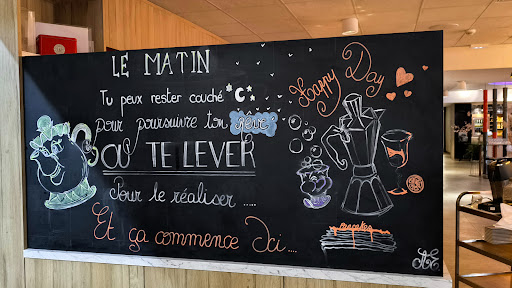 LE MATIN
Tu peux rester couché
pour poursuivre ton rêve
OU TE LEVER
Pour le réaliser.....
Et ça commence Ici....
Happy Day
pancakes